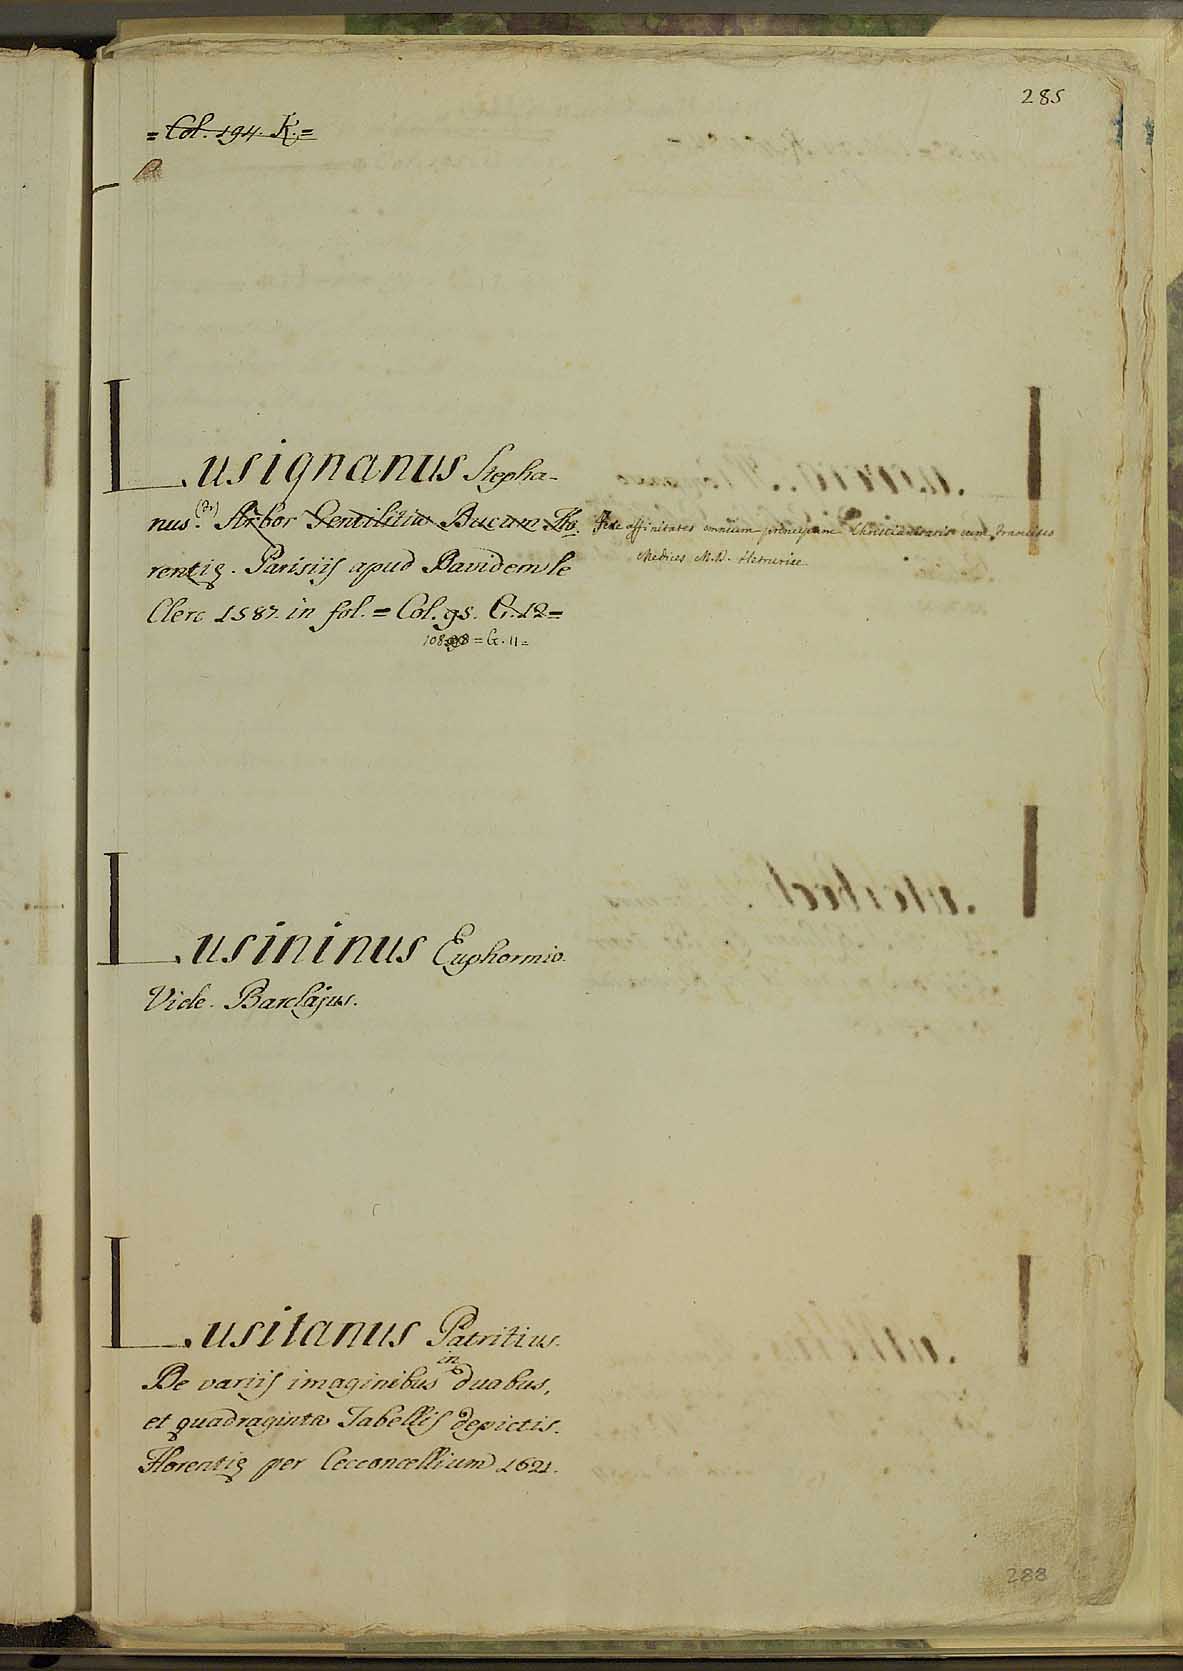 285
= Col. 194. K. =
Lusignanus Stepha-
nus. Arbor Gentilitia Ducum Flo
rentię. Parisiis apud Davidem le
Clerc 1587. in fol. = Col. 95. G. 12 =
= G. 11 =
affinitates omnium principum Christianitatis cum Francisco
Medices M. D. Hetruriæ
Lusininus Euphormio.
Vide. Barclajus.
Lusitanus Patritius.
in
De variis imaginibus duabus,
et quadraginta Tabellis depictis.
Florentię per Cecconcellium 1621.
288